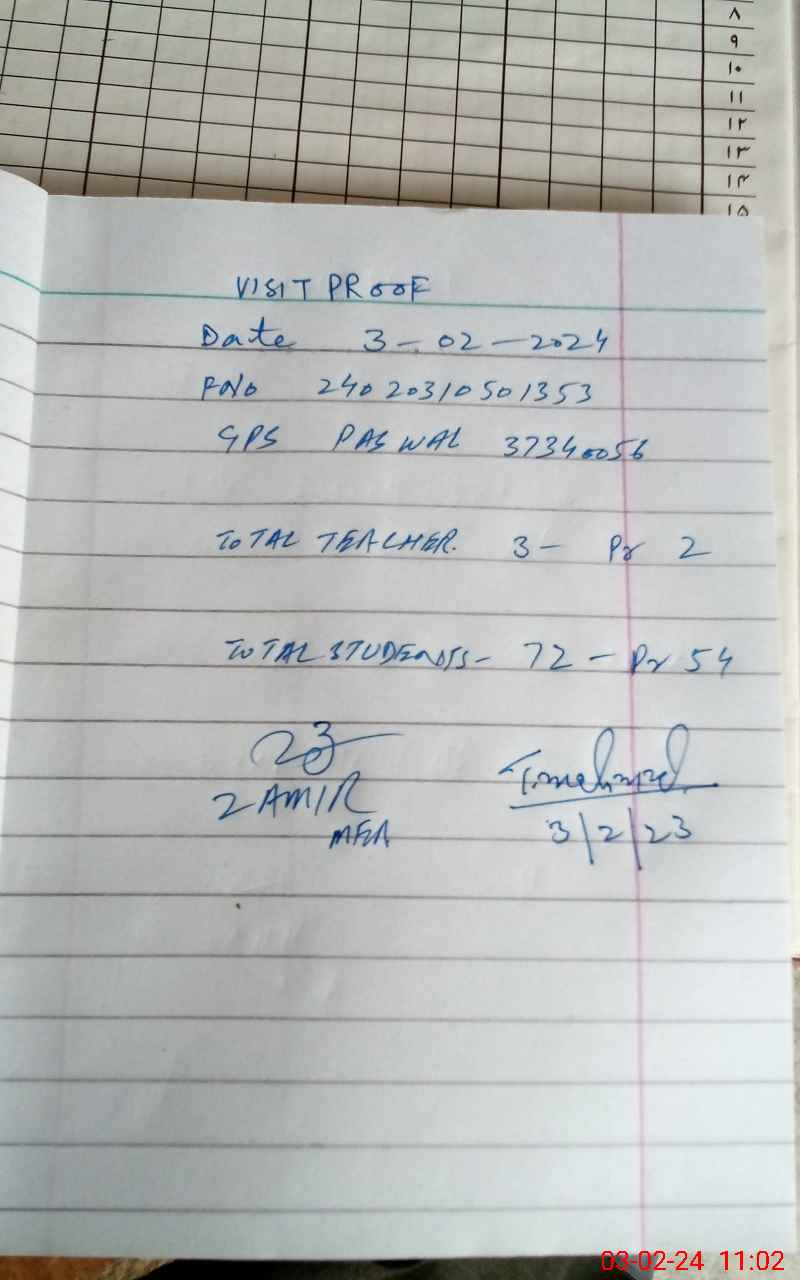 ٨
٩
١٠
١١
١٢
١٣
١٤
١٥
VISIT PROOF
Date 3-02-2024
FNo 24020310501353
GPS PASWAL 37340056
TOTAL TEACHER. 3- Pr 2
TOTAL STUDENTS- 72 - Pr 54
ZAMIR
MEA
3/2/23
03-02-24 11:02